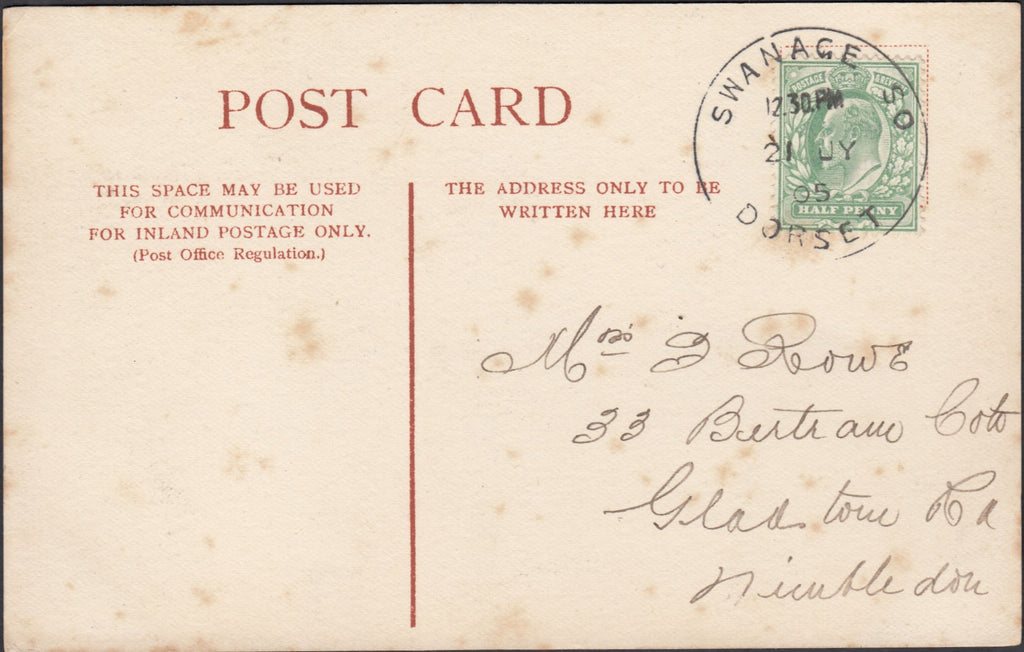 POST CARD
THIS SPACE MAY BE USED
FOR COMMUNICATION
FOR INLAND POSTAGE ONLY.
(Post Office Regulation.)
THE ADDRESS ONLY TO BE
WRITTEN HERE
SWANAGE S.O
12.30.PM
21 JY
05
DORSET
POSTAGE
HALF PENNY
Mrs Rowe
33 Bertram Cott
Gladstone Rd
Wimbledon